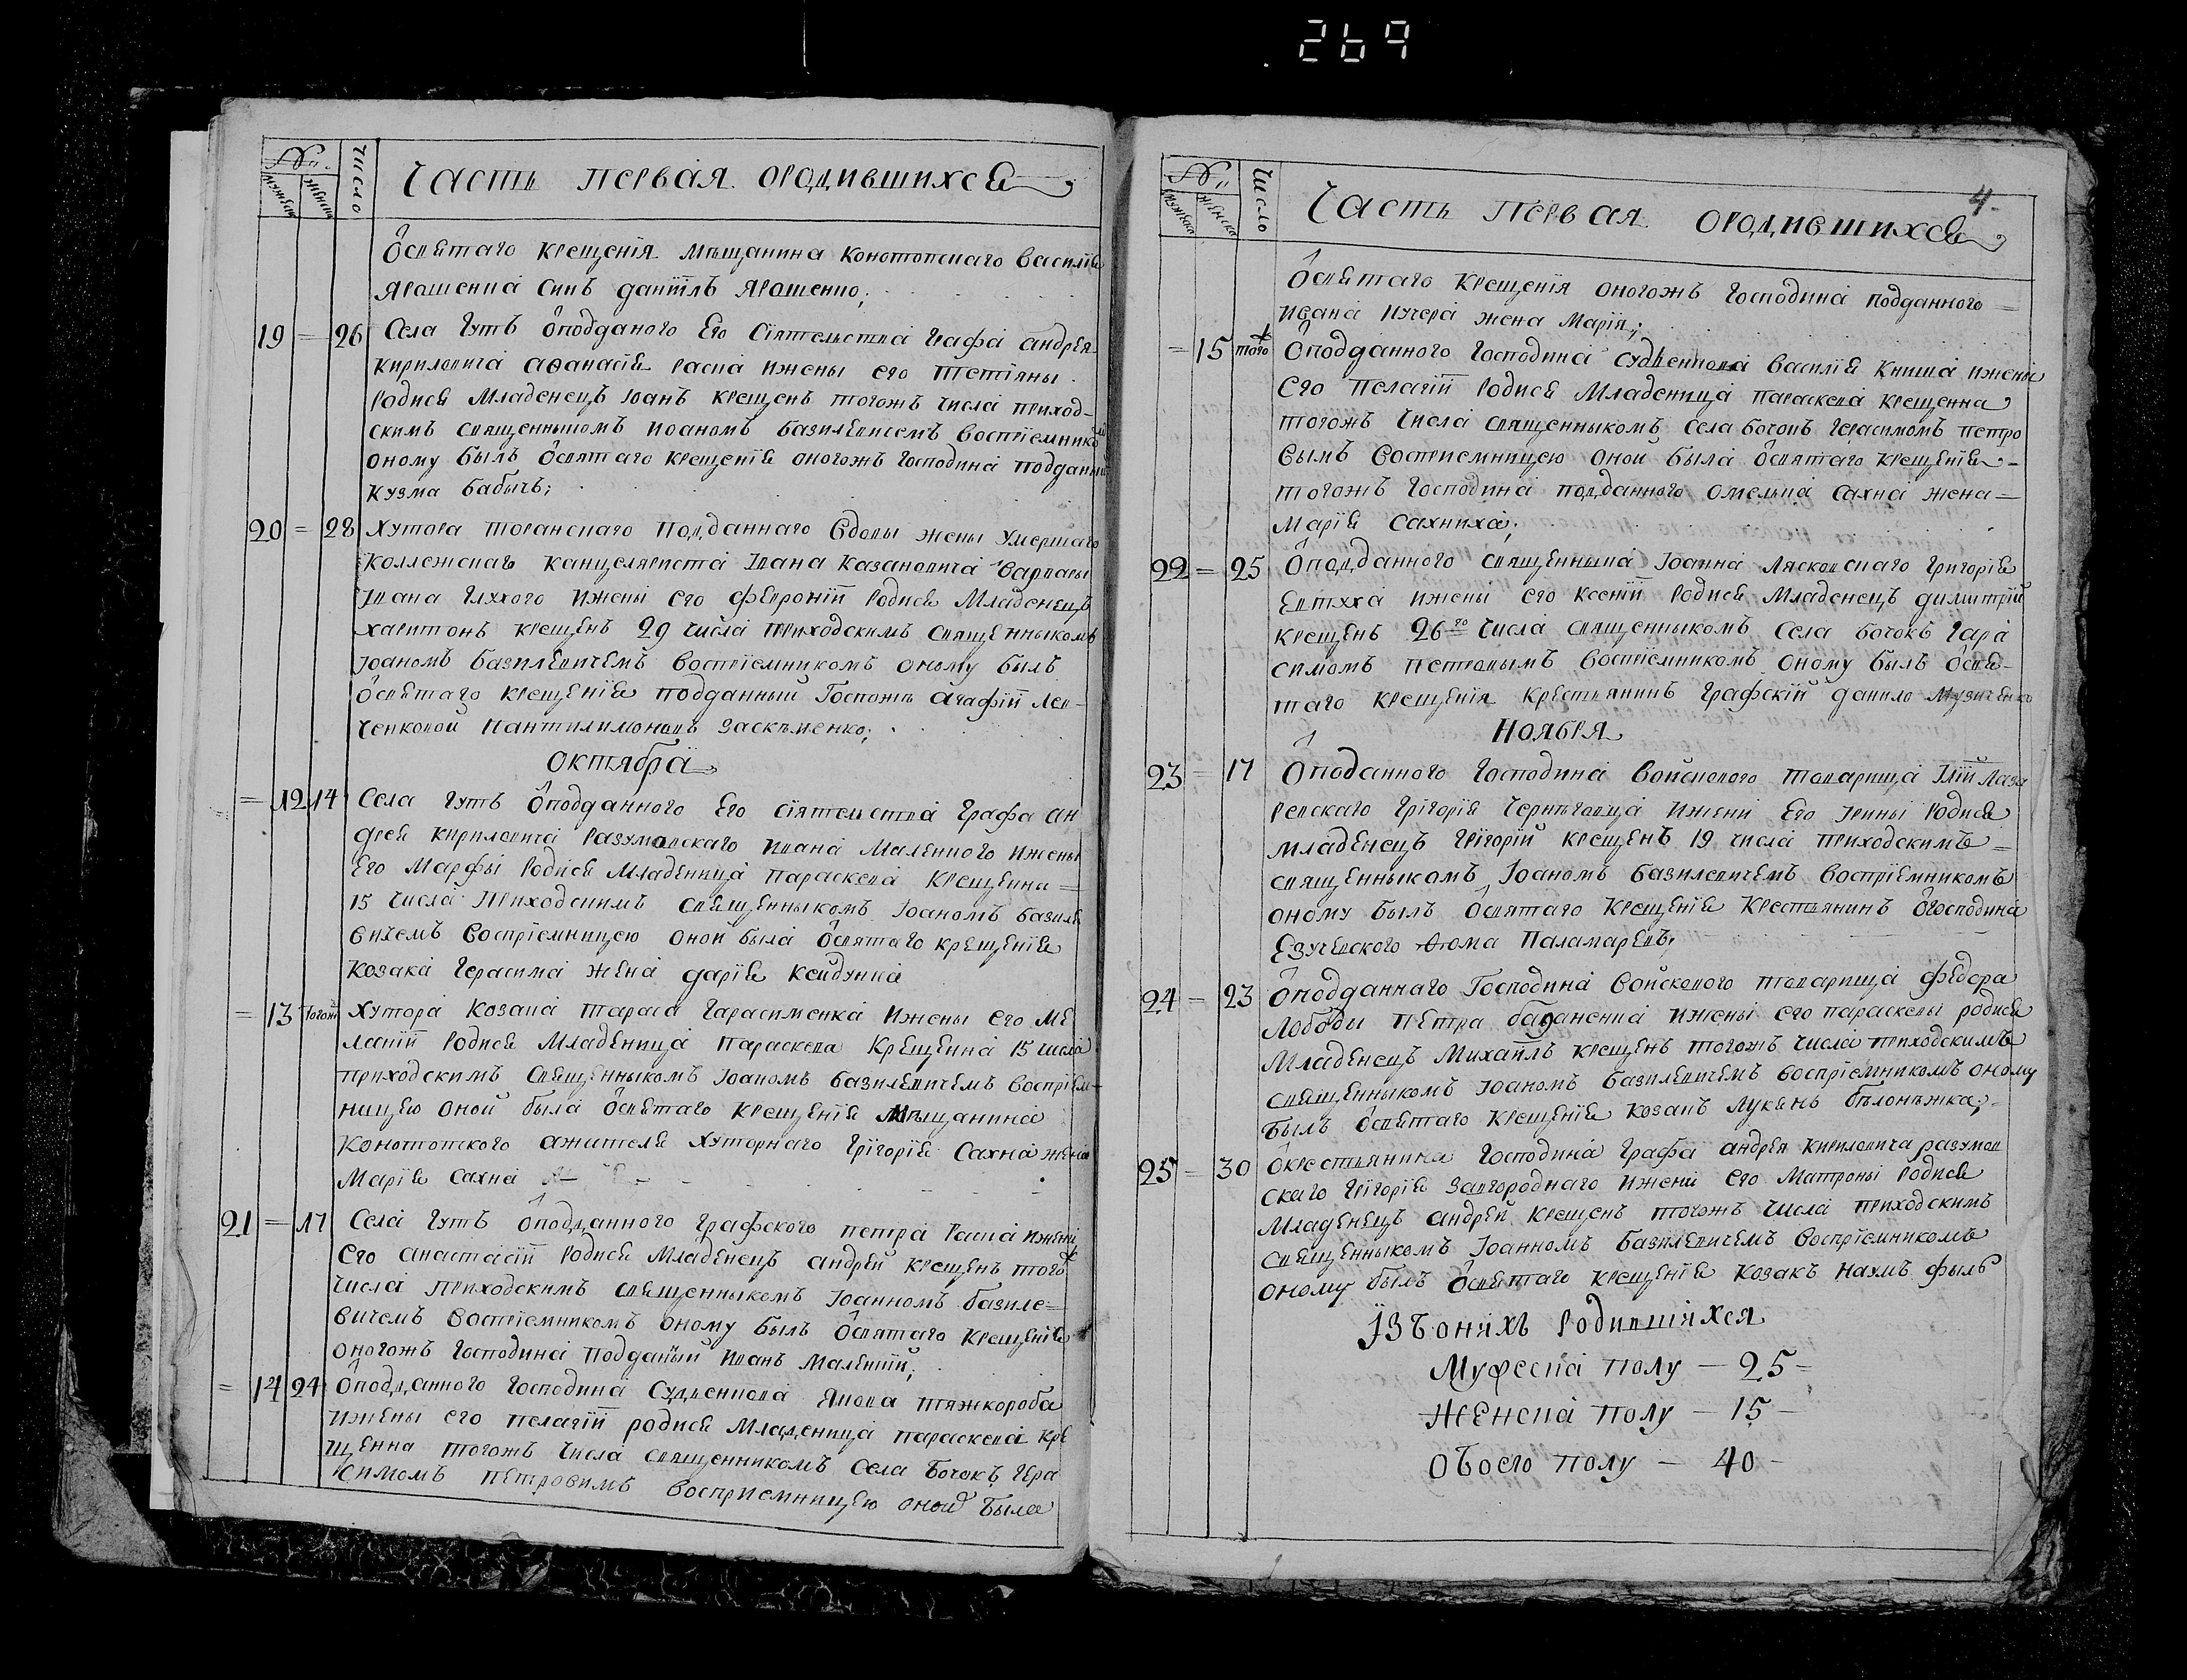 269
№
мужеск
женска
число
Часть первая ородившихся
Ôсвятаго крещенія мѣщанина конотопскаго василія
Ярошенка синъ даніилъ Ярошенко;
19 = 26 Села Гутъ ôподданого Его Сіятельства графа андрея
кириловича афанасія раска ижены его тетіяны
родися младенецъ іоанъ крещенъ тогожъ числа приход-
скимъ священныкомъ иоаномъ базилевисемъ восприемникомъ
оному былъ ôсвятаго крещенія оногожъ господина подданный
кузма бабычъ;
20 = 28 Хутора торанскаго подданнаго вдовы жены умершаго
коллежскаго канцеляриста Івана Казановича варвары
Івана глухого ижены его февроніи родися младенецъ
харитонъ крещенъ 29 числа приходскимъ священныкомъ
іоаномъ базилевичемъ воспріемникомъ оному былъ
ôсвятаго крещенія подданный госпожи агафіи лев-
ченковой пантилимонъ заскѣменко;
октября
= 12 14 Села гутъ ôподданного его сіятелства графа ан
дрея кириловича разумовскаго ивана маленкого ижены
его марфы родися младеница параскева крещенна =
15 числа приходскимъ священныкомъ іоаномъ базиле
вичемъ воспріемницею оной была ôсвятаго крещенія
козака герасима жена дарія кейдунка
= 13 тогож Хутора козака тараса гарасименка ижены его ме
ланіи родися младеница параскева крещенна 15 числа
приходскимъ священныкомъ іоаномъ базилевичемъ воспріем-
ницею оной была ôсвятаго крещенія мѣщанина
конотопского ажителя хуторнаго григорія сахна жена
марія сахна
21 = 17 Села гутъ ôподданного графского петра раска ижени
его анастасіи родися младенецъ андрей крещенъ тогож
числа приходскимъ священныкомъ іоанномъ базиле=
вичемъ востріемникомъ оному былъ ôсвятаго крещенія
оногожъ господина подданый иванъ маленкій;
= 14 24 ôподданного господина судиенкова якова тяжкороба
ижены его пелагіи родися младеница параскева кре
щенна тогожъ числа священникомъ села бочокъ гера
симомъ петровимъ восприемницею оной была
4.
№
мужска
женска
число
Часть первая ородившихся
Ôсвятаго крещенія оногожъ господина подданного =
ивана кучера жена марія;
= 15 тогож ôподданного господина судѣенкова василія книша ижены
его пелагіи родися младеница параскева крещенна
тогожъ числа священныкомъ села бочокъ герасимомъ петро
вымъ восприемницею оной была ôсвятаго крещенія -
тогожъ господина подданного омелька сахна жена =
марія сахниха;
22 = 25 ôподданного священныка іоанна лясковскаго григорія
евтуха ижены его ксеніи родися младенецъ димитрій
крещенъ 26го числа священныкомъ села бочокъ гара
симомъ петровымъ воспріемникомъ оному былъ ôсвя-
таго крещенія крестьянинъ графскій данило музиченко
ноября
23 = 17 ôподанного господина войскового товарища іліи лаза
ревского григорія чернѣговца ижени его ірины родися
младенецъ григорій крещенъ 19 числа приходскимъ =
священныкомъ іоаномъ базилевичемъ воспріемникомъ
оному былъ ôсвятаго крещенія крестьянинъ ôгосподина
езучевского ѳома паламаревъ;
24 = 23 ôподданнаго господина войскового товарища федора
лободы петра баданенка ижены его параскевы родися
младенецъ михаилъ крещенъ тогожъ числа приходскимъ
священныкомъ іоаномъ базилевичемъ воспріемникомъ оному
былъ ôсвятаго крещенія козакъ лукянъ бѣлоножка;
25 = 30 ôкрестьянина господина графа андрея кириловича разумов
скаго григорія завгороднаго ижени его матроны родися
младенецъ андрей крещенъ тогожъ числа приходскимъ
священныкомъ іоанномъ базилевичемъ воспріемникомъ
оному былъ ôсвятаго крещенія козакъ наумъ филь
ізъонихъ родившихся
мужеска полу — 25 =
женска полу — 15 —
обоего полу — 40 -